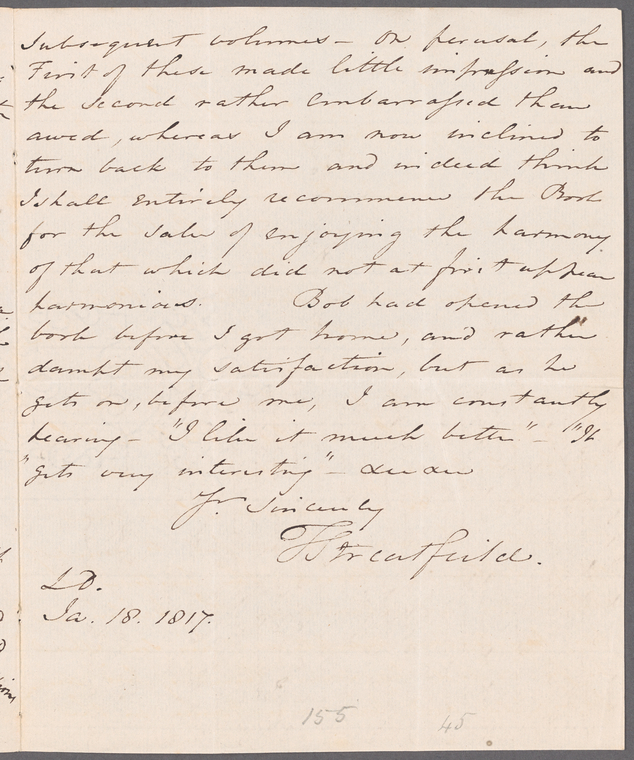 Subsequent volumes - On perusal, the
First of these made little impression and
the Second rather embarrassed than
awed, whereas I am now inclined to
turn back to them and indeed think
I shall entirely recommence the Book
for the sake of enjoying the harmony
of that which did not at first appear
harmonious. Bob had opened the
book before I got home, and rather
dampt my satisfaction, but as he
gets on, before me, I am constantly
hearing - "I like it much better" - "It
"gets very interesting" - &c &c
Yr. Sincerely
TStreatfeild.
LD.
Ja. 18. 1817.
155 45